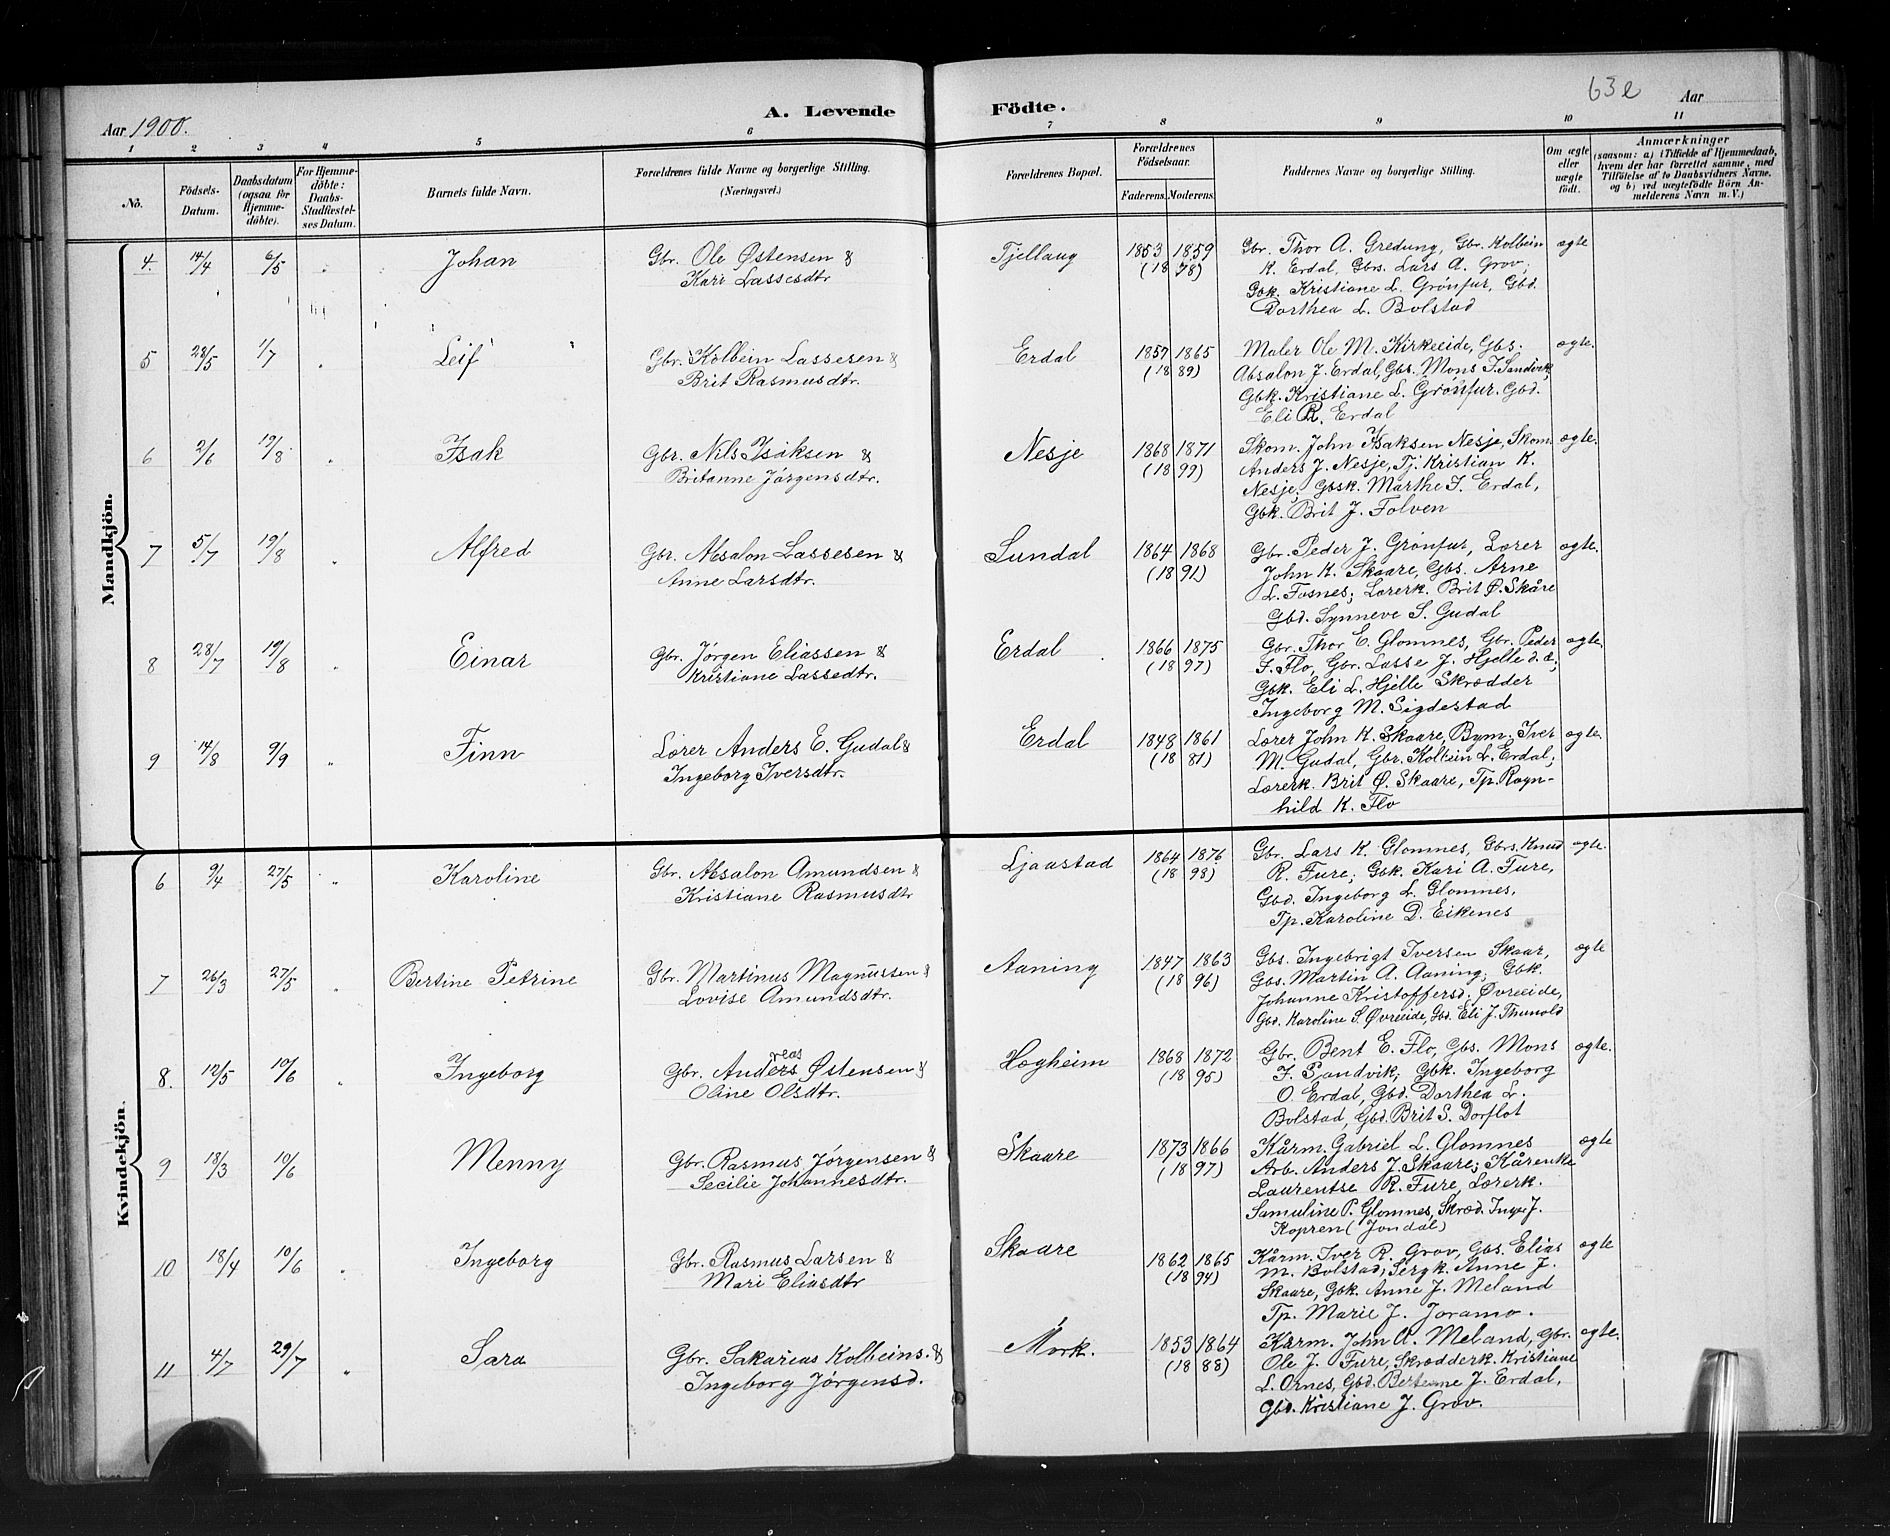 63e
Aar 1900.
A. Levende Födte.
Aar
1 2 3 4 5 6 7 8 9 10 11
No.
Födsels-Datum.
Daabsdatum (ogsaa for Hjemmedöbte).
For Hjemmedöbte: Daabs-Stadfæstelses Datum.
Barnets fulde Navn.
Forældrenes fulde Navne og borgerlige Stilling.
(Næringsvei.)
Forældrenes Bopæl.
Forældrenes Födselsaar.
Faderens. Moderens.
Faddernes Navne og borgerlige Stilling.
Om ægte eller uægte födt.
Anmærkninger
(saasom: a) i Tilfælde af Hjemmedaab,
hvem der har forrettet samme, med
Tilföielse af to Daabsvidners Navne.
og b) ved uægtefödte Börn An-
melderens Navn m. V.)
Mandkjön.
4. 14/4 6/5 " Johan Gbr. Ole Østensen & Tjellaug 1853 1859 Gbr. Thor A. Gredung, Gbr. Kolbein ægte
Kari Lassesdtr (1878) K. Erdal, Gbrs. Lars A. Grov,
Gbk. Kristiane L. Grönfur, Gbd.
Dorthea L. Bolstad
5 28/5 1/7 " Leif Gbr. Kolbein Lassesen & Erdal 1857 1865 Maler Ole M. Kirkeeide, Gbs. ægte.
Brit Rasmusdtr. (1889) Absalon J. Erdal, Gbs. Mons J. Sandvik,
Gbk. Kristiane L. Grönfur. Gbd.
Eli R. Erdal
6 2/6 19/8 " Isak Gbr. Nils Isaksen & Nesje 1868 1871 Skom. John Isaksen Nesje, Skom. ægte.
Britanne Jörgensdtr. (1899) Anders J. Nesje, Tj. Kristian K.
Nesje; Gbsk. Marthe J. Erdal,
Gbk. Brit J. Folven
7 5/7 19/8 " Alfred Gbr. Absalon Lassesen & Sundal 1864 1868 Gbr. Peder J. Grönfur, Lærer ægte.
Anne Larsdtr. (1891) John K. Skaare, Gbs. Arne
L. Fosnes; Lærerk. Brit Ø. Skåre
Gbd. Synneve S. Gudal
8 28/7 19/8 " Einar Gbr. Jörgen Eliassen & Erdal 1866 1875 Gbr. Thor E. Glomnes, Gbr. Peder ægte.
Kristiane Lassedtr. (1897) J. Flo, Gbr. Lasse J. Hjelle d. æ;
Gbk. Eli L. Hjelle Skrædder
Ingeborg M. Sigdestad
9 14/8 9/9 " Finn Lærer Anders E. Gudal & Erdal 1848 1861 Lærer John K. Skaare, Bym. Iver ægte.
Ingeborg Iversdtr. (1881) M. Gudal, Gbr. Kolbein L. Erdal;
Lærerk. Brit Ø. Skaare, Tp. Ragn-
hild K. Flo
Kvindekjön.
6 9/4 27/5 " Karoline Gbr. Absalon Amundsen & Ljaastad 1864 1876 Gbr. Lars K. Glomnes, Gbrs. Knud ægte.
Kristiane Rasmusdtr (1898) R. Fure; Gbk. Kari A. Fure,
Gbd. Ingeborg L. Glomnes,
Tp. Karoline D. Eikenes
7 26/3 27/5 " Bertine Petrine Gbr. Martinus Magnussen & Aaning 1847 1863 Gbs. Ingebrigt Iversen Skaar, ægte
Lovise Amundsdtr. (1896) Gbs. Martin A. Aaning; Gbk.
Johanne Kristoffersd. Øvreeide,
Gbd. Karoline S. Øvreeide, Gbd. Eli J. Thunold
8. 12/5 10/6 " Ingeborg Gbr. Anders reas Østensen & Hægheim 1868 1872 Gbr. Bent E. Flo, Gbs. Mons ægte.
Oline Olsdtr. (1895) J. Sandvik; Gbk. Ingeborg
O. Erdal, Gbd. Dorthea L.
Bolstad, Gbd. Brit S. Dorflot
9 18/3 10/6 " Menny Gbr. Rasmus Jörgensen & Skaare 1873 1866 Kårm. Gabriel L. Glomnes ægte
Secilie Johannesdtr. (1897) Arb. Anders J. Skaare; Kårenke
Laurentse R. Fure, Lærerk.
Samuline P. Glomnes, Skræd. Inge J.
Kopren (Jondal)
10 18/4 10/6 " Ingeborg Gbr. Rasmus Larsen & Skaare 1862 1865 Kårm. Iver R. Grov, Gbs. Elias ægte
Mari Eliasdtr (1894) M. Bolstad; Sergk. Anne J.
Skaare, Gbk. Anne J. Meland
Tp. Marie J. Joramo.
11 4/7 29/7 " Sara Gbr. Sakarias Kolbeins. & Mork. 1853 1864 Kårm. John A. Meland, Gbr. ægte.
Ingeborg Jörgensd. (1888) Ole J. Fure, Skrædderk. Kristiane
L. Ornes, Gbd. Bertine J. Erdal,
Gbd. Kristiane J. Grov.